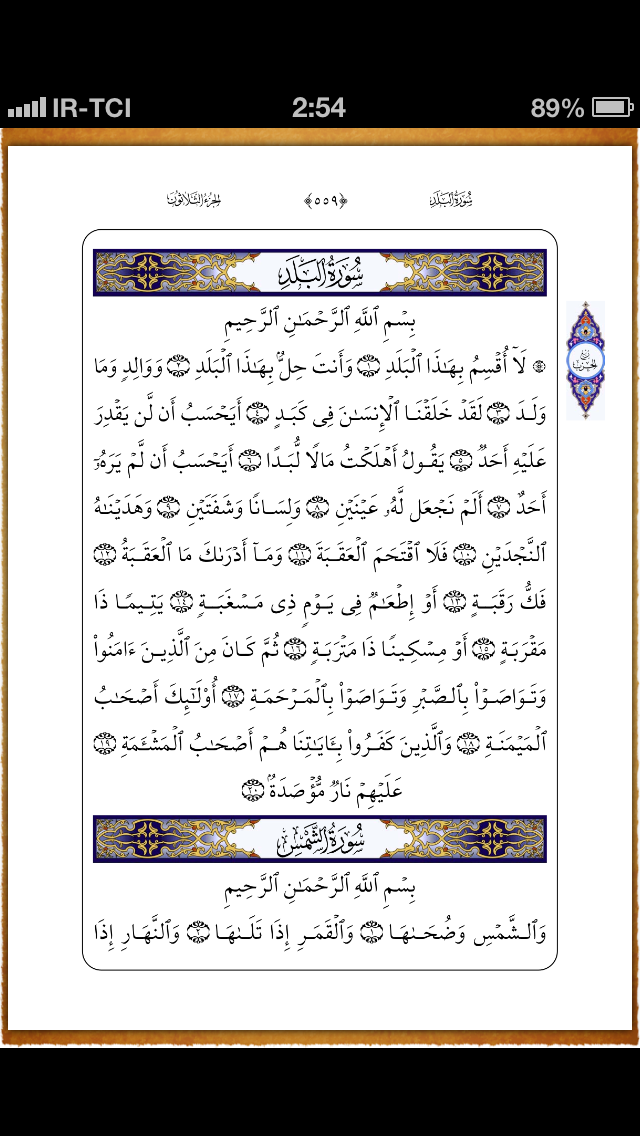 IR-TCI 2:54 89%
سُورَةُ البَلَدِ ﴿٥٥٩﴾ الجُزءُ الثَّلَاثُونَ
سُورَةُ البَلَدِ
بِسْمِ ٱللَّهِ ٱلرَّحْمَـٰنِ ٱلرَّحِيمِ
۞ لَآ أُقْسِمُ بِهَـٰذَا ٱلْبَلَدِ ١ وَأَنتَ حِلٌّۢ بِهَـٰذَا ٱلْبَلَدِ ٢ وَوَالِدٍ وَمَا
وَلَدَ ٣ لَقَدْ خَلَقْنَا ٱلْإِنسَـٰنَ فِى كَبَدٍ ٤ أَيَحْسَبُ أَن لَّن يَقْدِرَ
عَلَيْهِ أَحَدٌ ٥ يَقُولُ أَهْلَكْتُ مَالًا لُّبَدًا ٦ أَيَحْسَبُ أَن لَّمْ يَرَهُۥٓ
أَحَدٌ ٧ أَلَمْ نَجْعَل لَّهُۥ عَيْنَيْنِ ٨ وَلِسَانًا وَشَفَتَيْنِ ٩ وَهَدَيْنَـٰهُ
ٱلنَّجْدَيْنِ ١٠ فَلَا ٱقْتَحَمَ ٱلْعَقَبَةَ ١١ وَمَآ أَدْرَىٰكَ مَا ٱلْعَقَبَةُ ١٢
فَكُّ رَقَبَةٍ ١٣ أَوْ إِطْعَـٰمٌ فِى يَوْمٍ ذِى مَسْغَبَةٍ ١٤ يَتِيمًا ذَا
مَقْرَبَةٍ ١٥ أَوْ مِسْكِينًا ذَا مَتْرَبَةٍ ١٦ ثُمَّ كَانَ مِنَ ٱلَّذِينَ ءَامَنُوا۟
وَتَوَاصَوْا۟ بِٱلصَّبْرِ وَتَوَاصَوْا۟ بِٱلْمَرْحَمَةِ ١٧ أُو۟لَـٰٓئِكَ أَصْحَـٰبُ
ٱلْمَيْمَنَةِ ١٨ وَٱلَّذِينَ كَفَرُوا۟ بِـَٔايَـٰتِنَا هُمْ أَصْحَـٰبُ ٱلْمَشْـَٔمَةِ ١٩
عَلَيْهِمْ نَارٌ مُّؤْصَدَةٌۢ ٢٠
سُورَةُ الشَّمْسِ
بِسْمِ ٱللَّهِ ٱلرَّحْمَـٰنِ ٱلرَّحِيمِ
وَٱلشَّمْسِ وَضُحَىٰهَا ١ وَٱلْقَمَرِ إِذَا تَلَىٰهَا ٢ وَٱلنَّهَارِ إِذَا